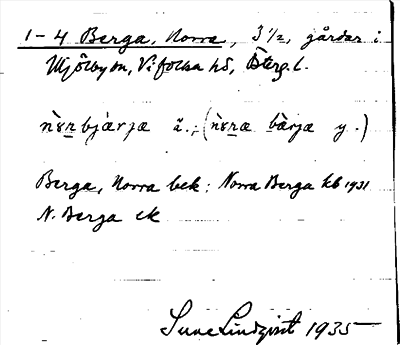 1-4 Berga, Norra, 3 1/2, gårdar i
Mjölby sn, Vifolka hd, Östergl.
nɤ̀ṟn bjærjæ ä.; (nɤ̀ṟæ bærjæ y.)
Berga, Norra bek: Norra Berga kb 1931
N. Berga ek
Sune Lindqvist 1935